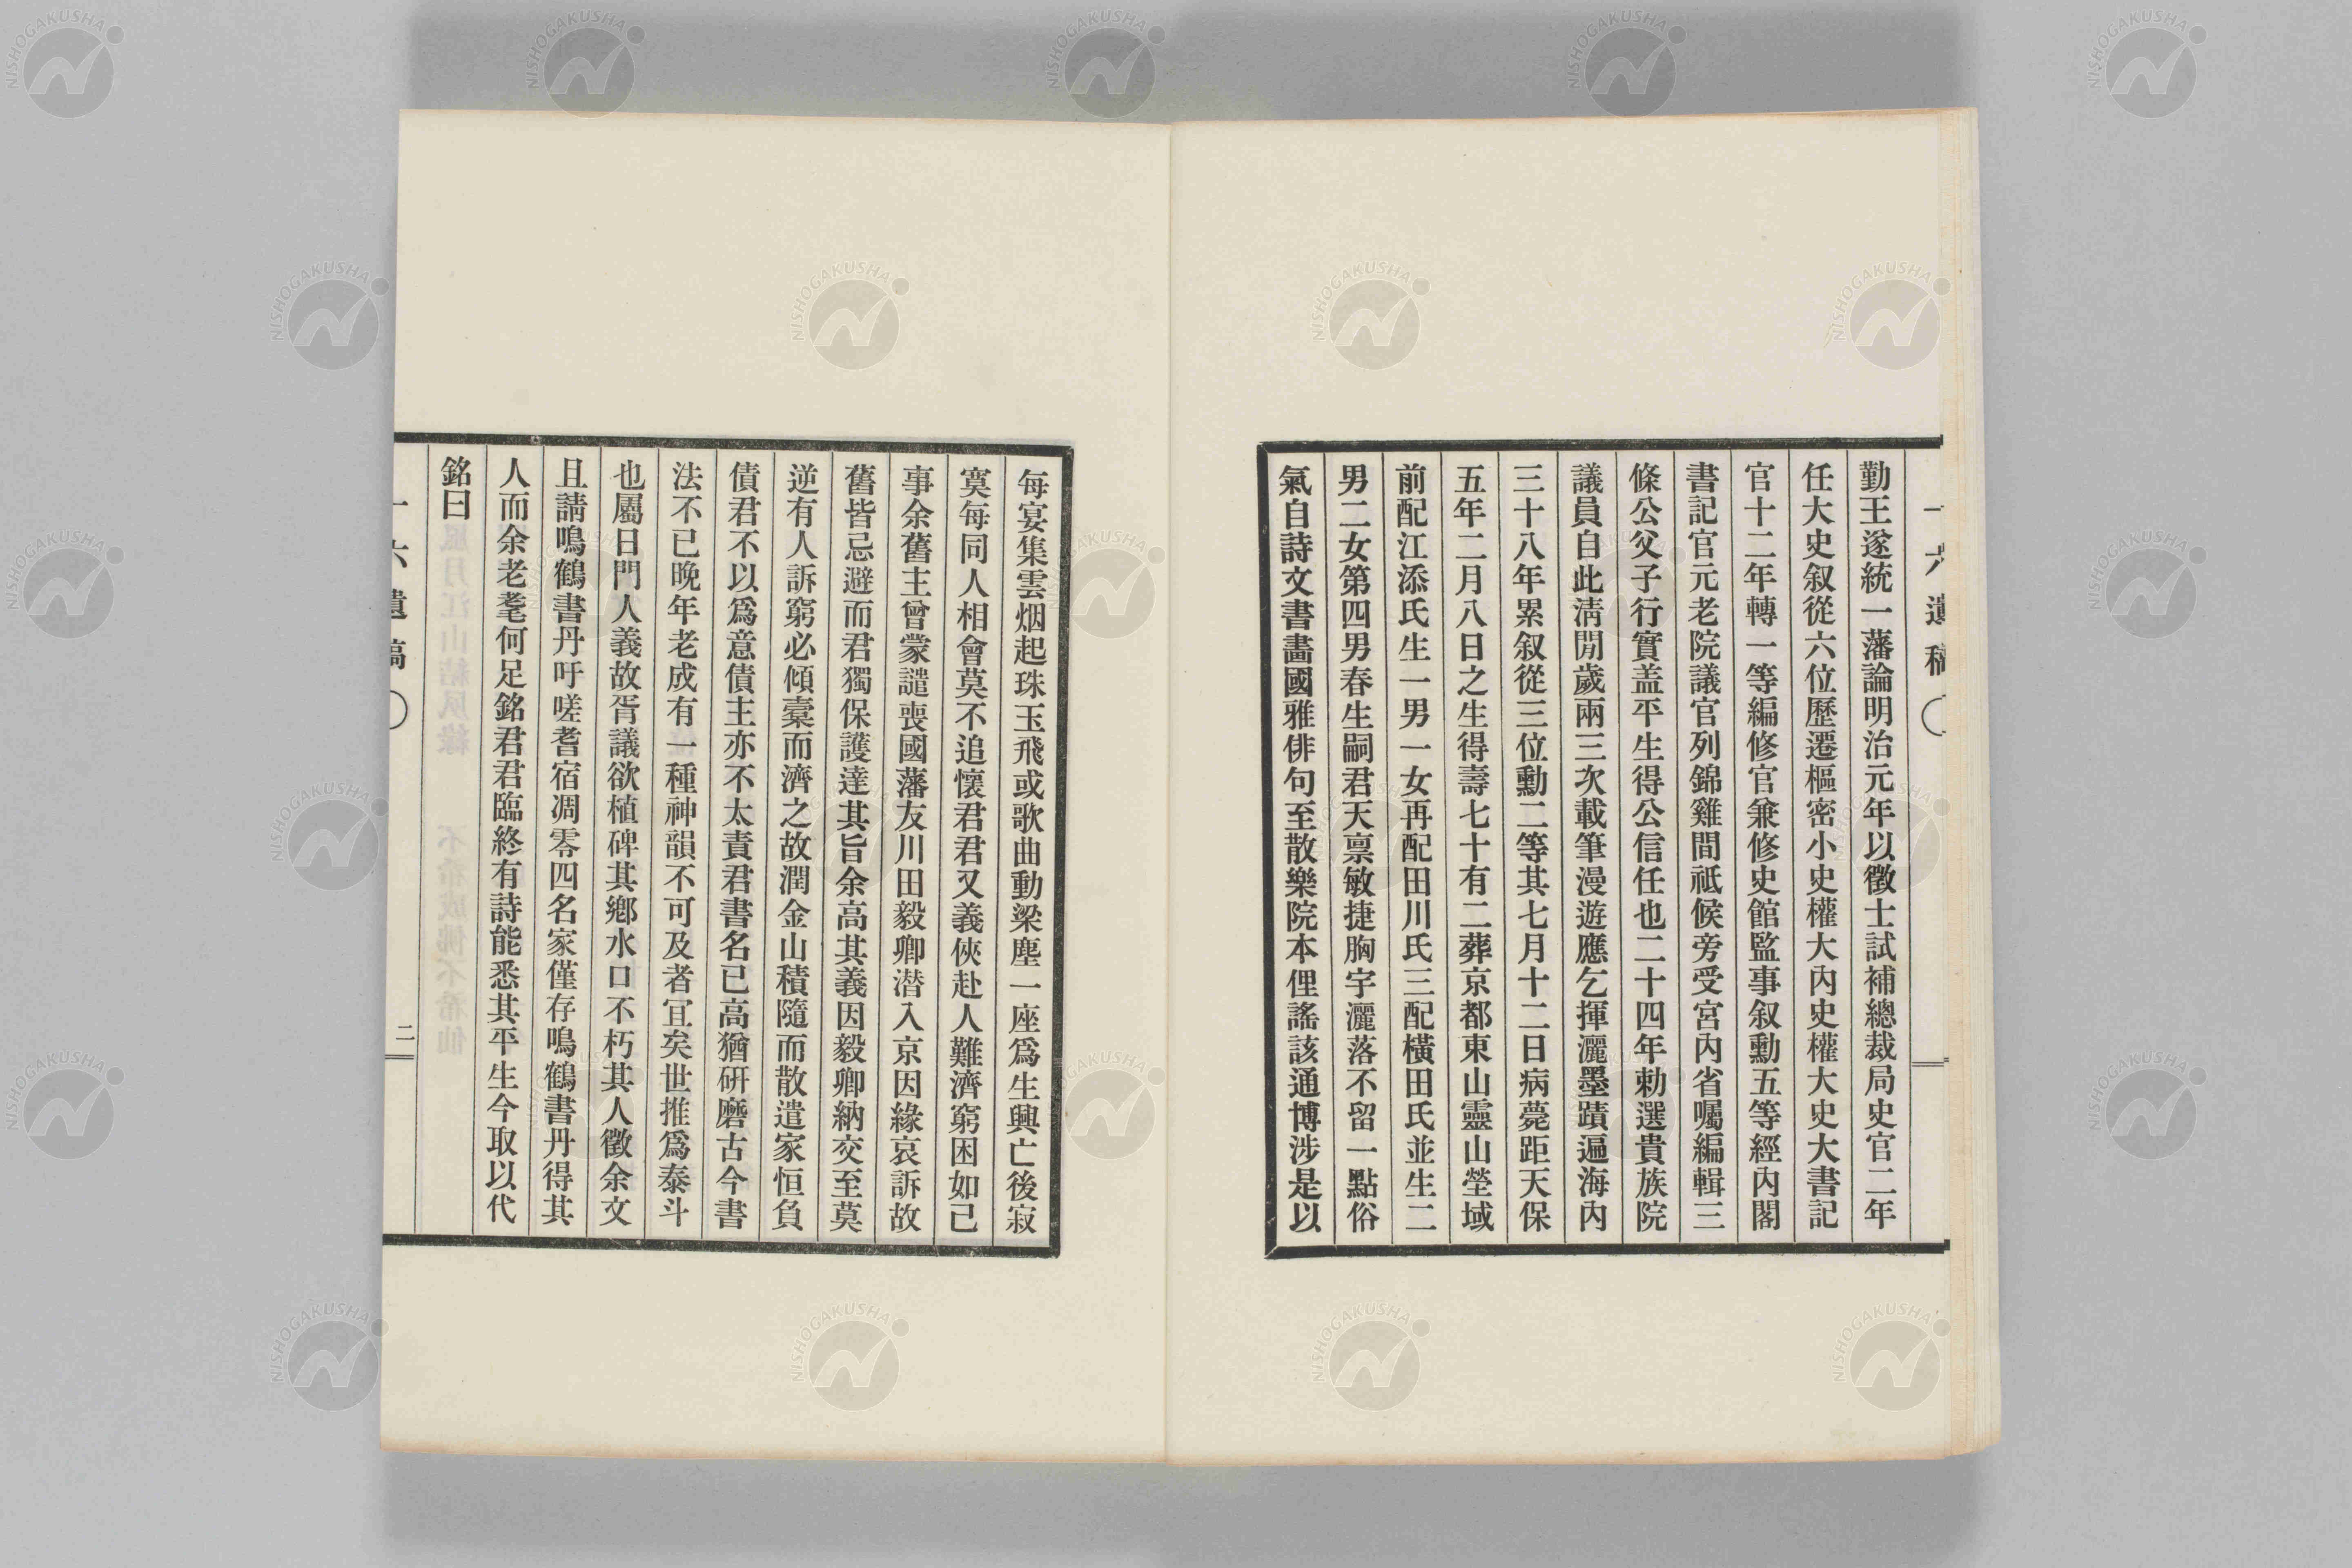 一六遺稿
勤王遂統一藩論明治元年以徵士試補總裁局史官二年
任大史叙從六位歷遷樞密小史權大內史權大史大書記
官十二年轉一等編修官兼修史館監事叙勳五等經內閣
書記官元老院議官列錦雞間祗候旁受宮內省囑編輯三
條公父子行實盖平生得公信任也二十四年勅選貴族院
議員自此淸閒歲兩三次載筆漫遊應乞揮灑墨蹟遍海內
三十八年累叙從三位勳二等其七月十二日病薨距天保
五年二月八日之生得壽七十有二葬京都東山靈山塋域
前配江添氏生一男一女再配田川氏三配橫田氏並生二
男二女第四男春生嗣君天禀敏捷胸宇灑落不留一點俗
氣自詩文書畵國雅俳句至散樂院本俚謠該通博涉是以
每宴集雲烟起珠玉飛或歌曲動梁塵一座爲生興亡後寂
寞每同人相會莫不追懷君君又義俠赴人難濟窮困如己
事余舊主曾蒙譴喪國藩友川田毅卿潛入京因緣哀訴故
舊皆忌避而君獨保護達其旨余高其義因毅卿納交至莫
逆有人訴窮必傾橐而濟之故潤金山積隨而散遣家恒負
債君不以爲意債主亦不太責君書名已高猶硏磨古今書
法不已晩年老成有一種神韻不可及者宜矣世推爲泰斗
也屬日門人義故胥議欲植碑其鄕水口不朽其人徵余文
且請鳴鶴書丹吁嗟耆宿凋零四名家僅存鳴鶴書丹得其
人而余老耄何足銘君君臨終有詩能悉其平生今取以代
銘曰
一六遺稿
二
NISHOGAKUSHA